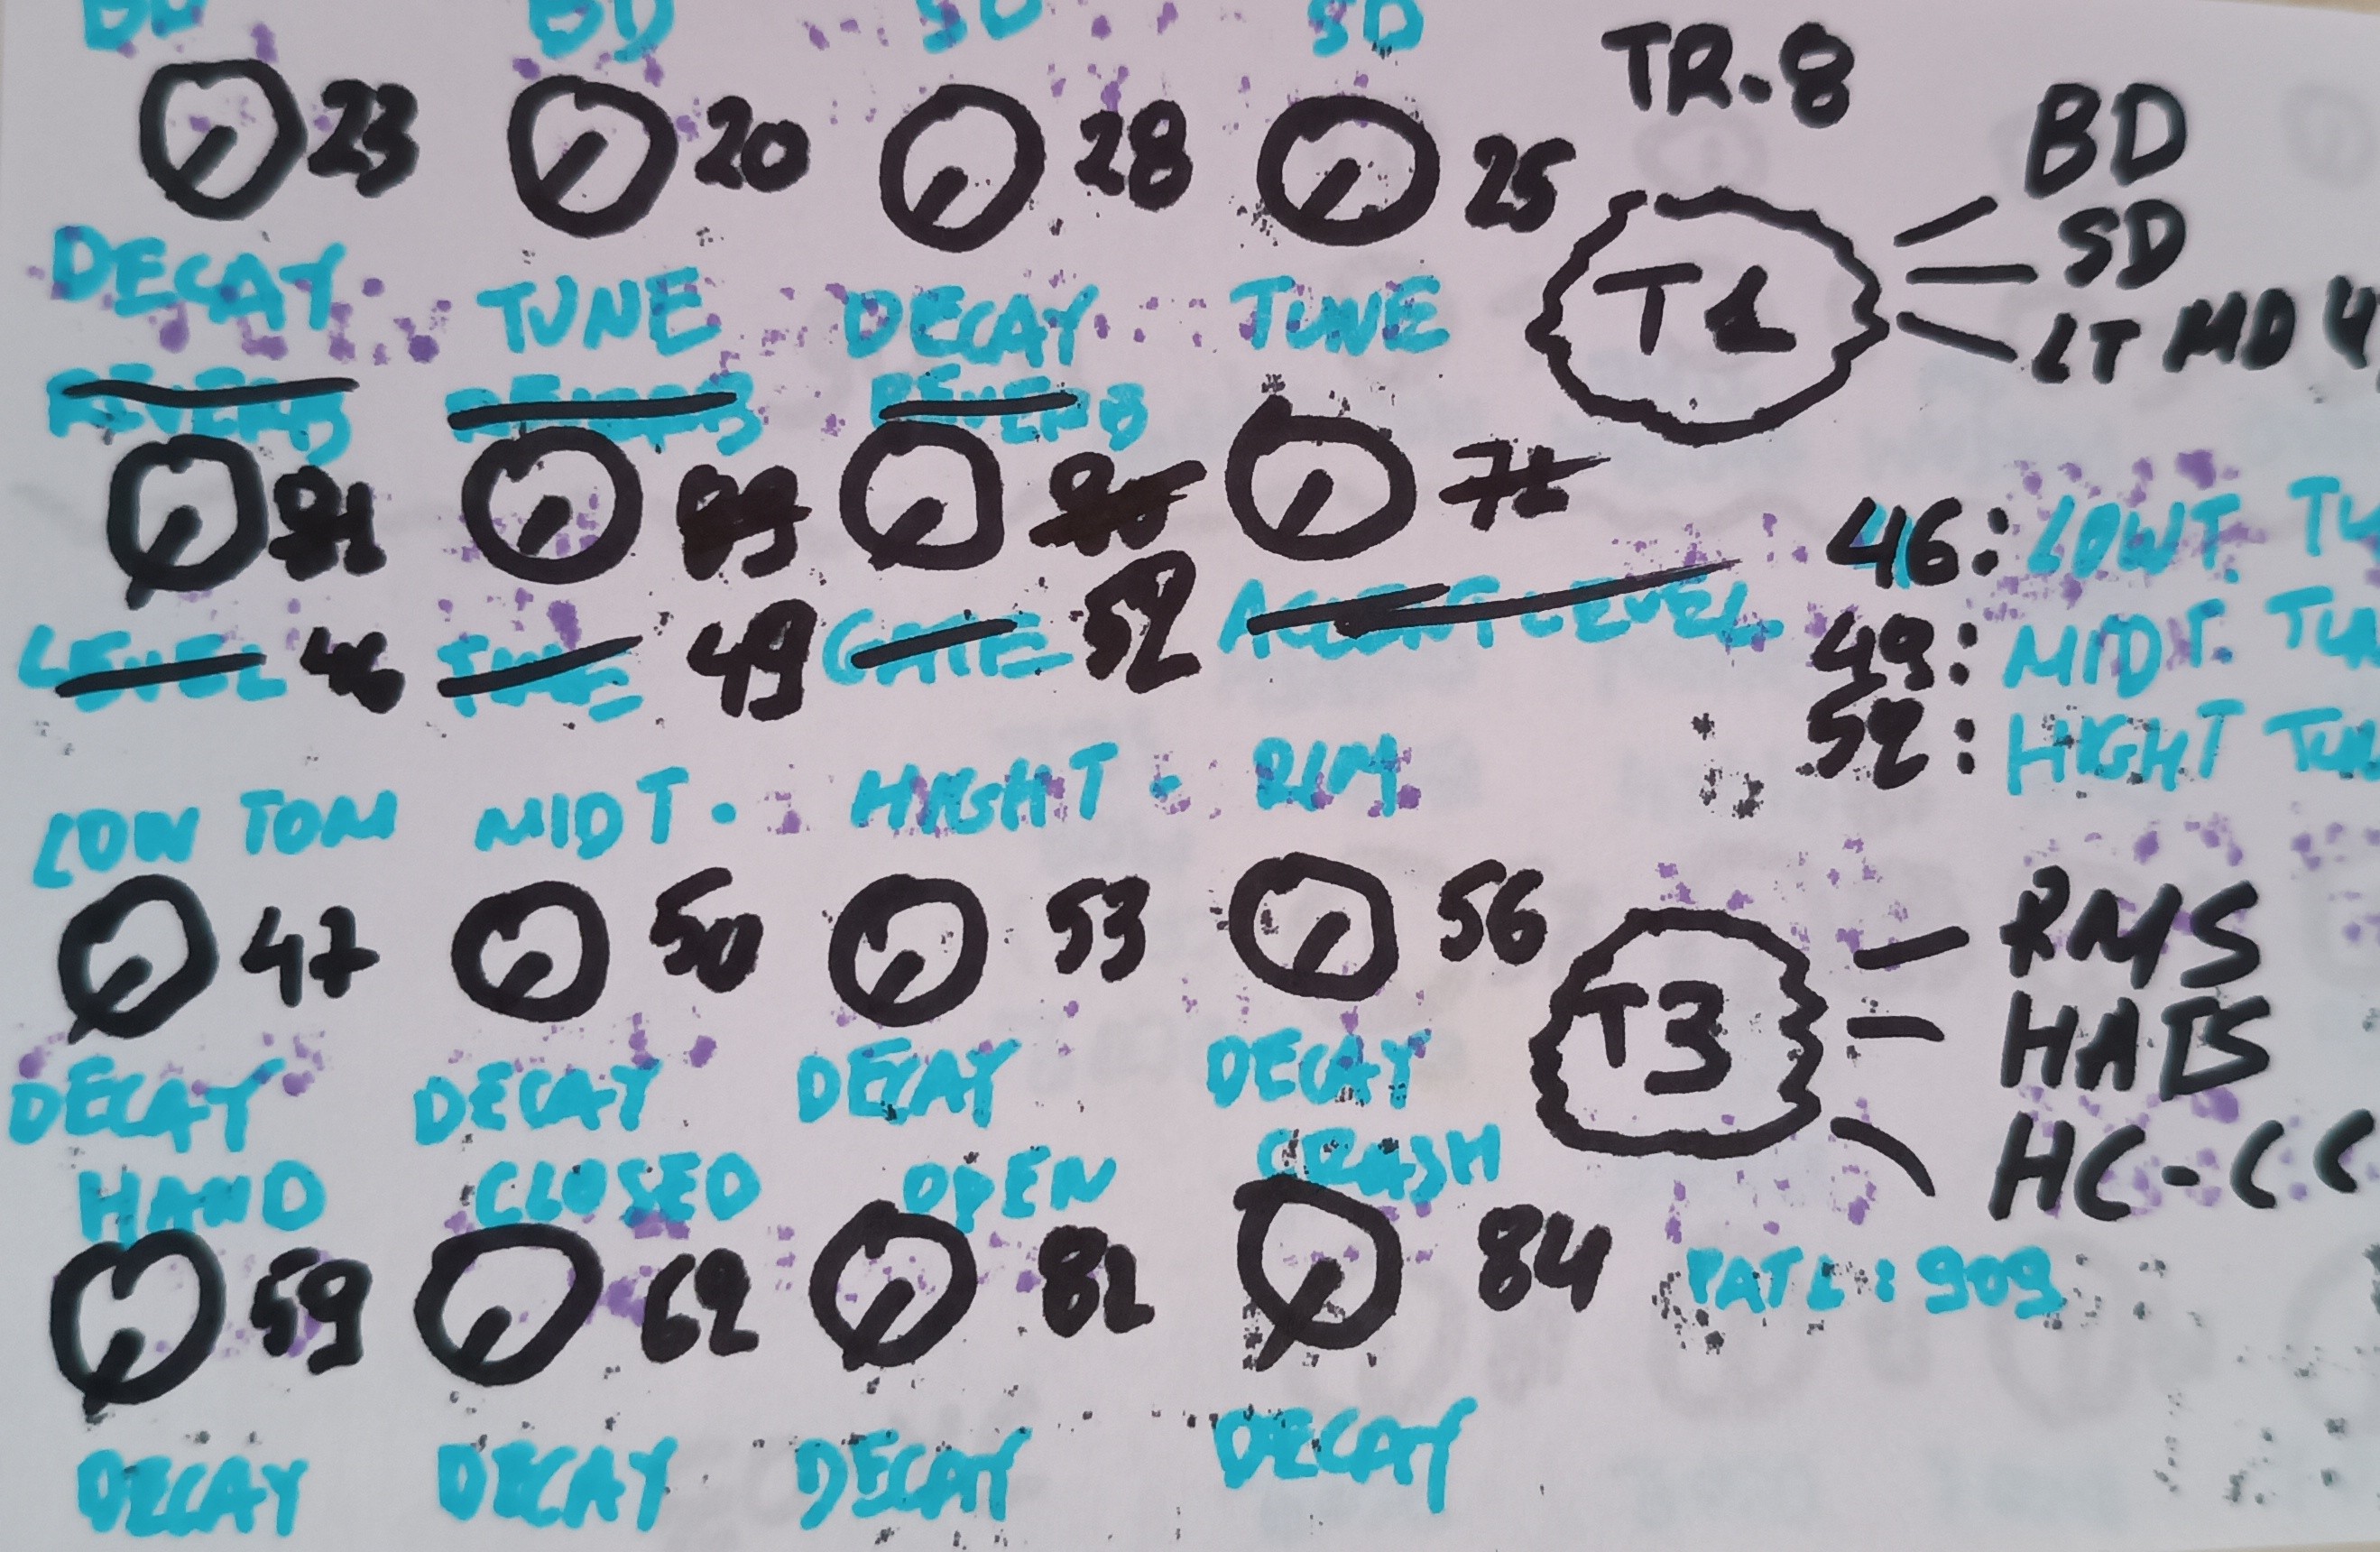 BD BD SD SD
TR-8
23 20 28 25
DECAY TUNE DECAY TUNE
T1
BD
SD
LT MD
REVERB REVERB REVERB
91 89 90 71
LEVEL TIME GATE ACCENT LEVEL
46 49 52
46: LOWT. TU
49: MIDT. TUN
52: HIGHT TUN
LOW TOM MIDT. HIGHT. RIM
47 50 53 56
DECAY DECAY DECAY DECAY
T3
RMS
HATS
HC-CC
HAND CLOSED OPEN CRASH
59 62 82 84
PATL: 909
DECAY DECAY DECAY DECAY